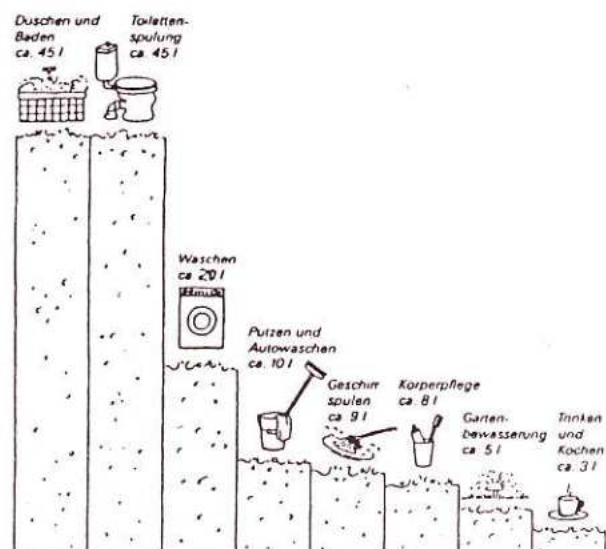 Duschen und
Baden
ca. 45 l
Toiletten-
spulung
ca. 45 l
Waschen
ca. 20 l
Putzen und
Autowaschen
ca. 10 l
Geschirr
spulen
ca. 9 l
Korperpflege
ca. 8 l
Garten-
bewasserung
ca. 5 l
Trinken
und
Kochen
ca. 3 l